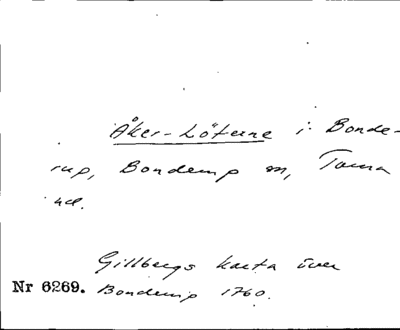 Åker-Löterne i Bonde-
rup, Bonderup sn, Torna
hd.
Gillbergs karta över
Nr 6269. Bonderup 1760.